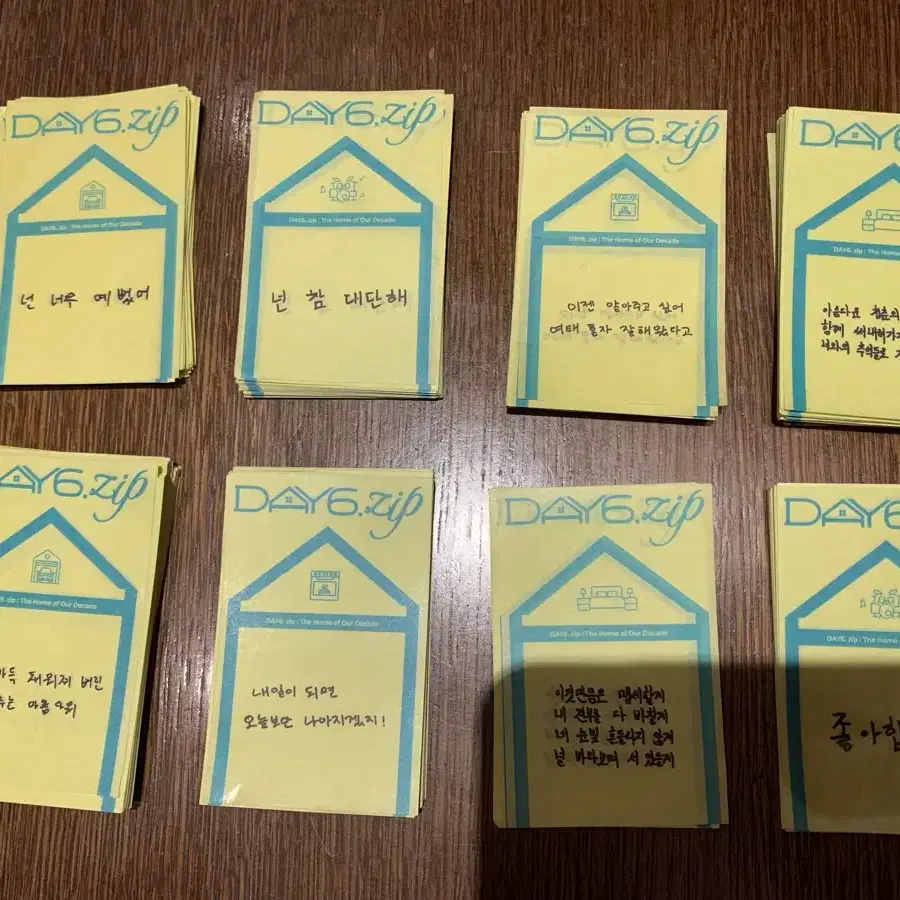 DAY6.zip
DAY6. zip : The Home of Our Decade
넌 너무 예뻤어
DAY6.zip
DAY6. zip : The Home of Our Decade
넌 참 대단해
DAY6.zip
DAY6. zip : The Home of Our Decade
이젠 알아주고 싶어
여태 혼자 잘해왔다고
DAY6
DAY6. zip : The Home of
아름다운 청춘의
함께 써내려가
너와의 추억들로
AY6.zip
6. zip : The Home of Our Decade
채워져 버린
아름다워
DAY6.zip
DAY6. zip : The Home of Our Decade
내일이 되면
오늘보단 나아지겠지!
DAY6.zip
DAY6. zip : The Home of Our Decade
이것만큼은 맹세할게
내 전부를 다 바칠게
네 눈빛 흔들리지 않게
널 바라보며 서 있을게
DAY6
DAY6. zip : The Home
좋아합